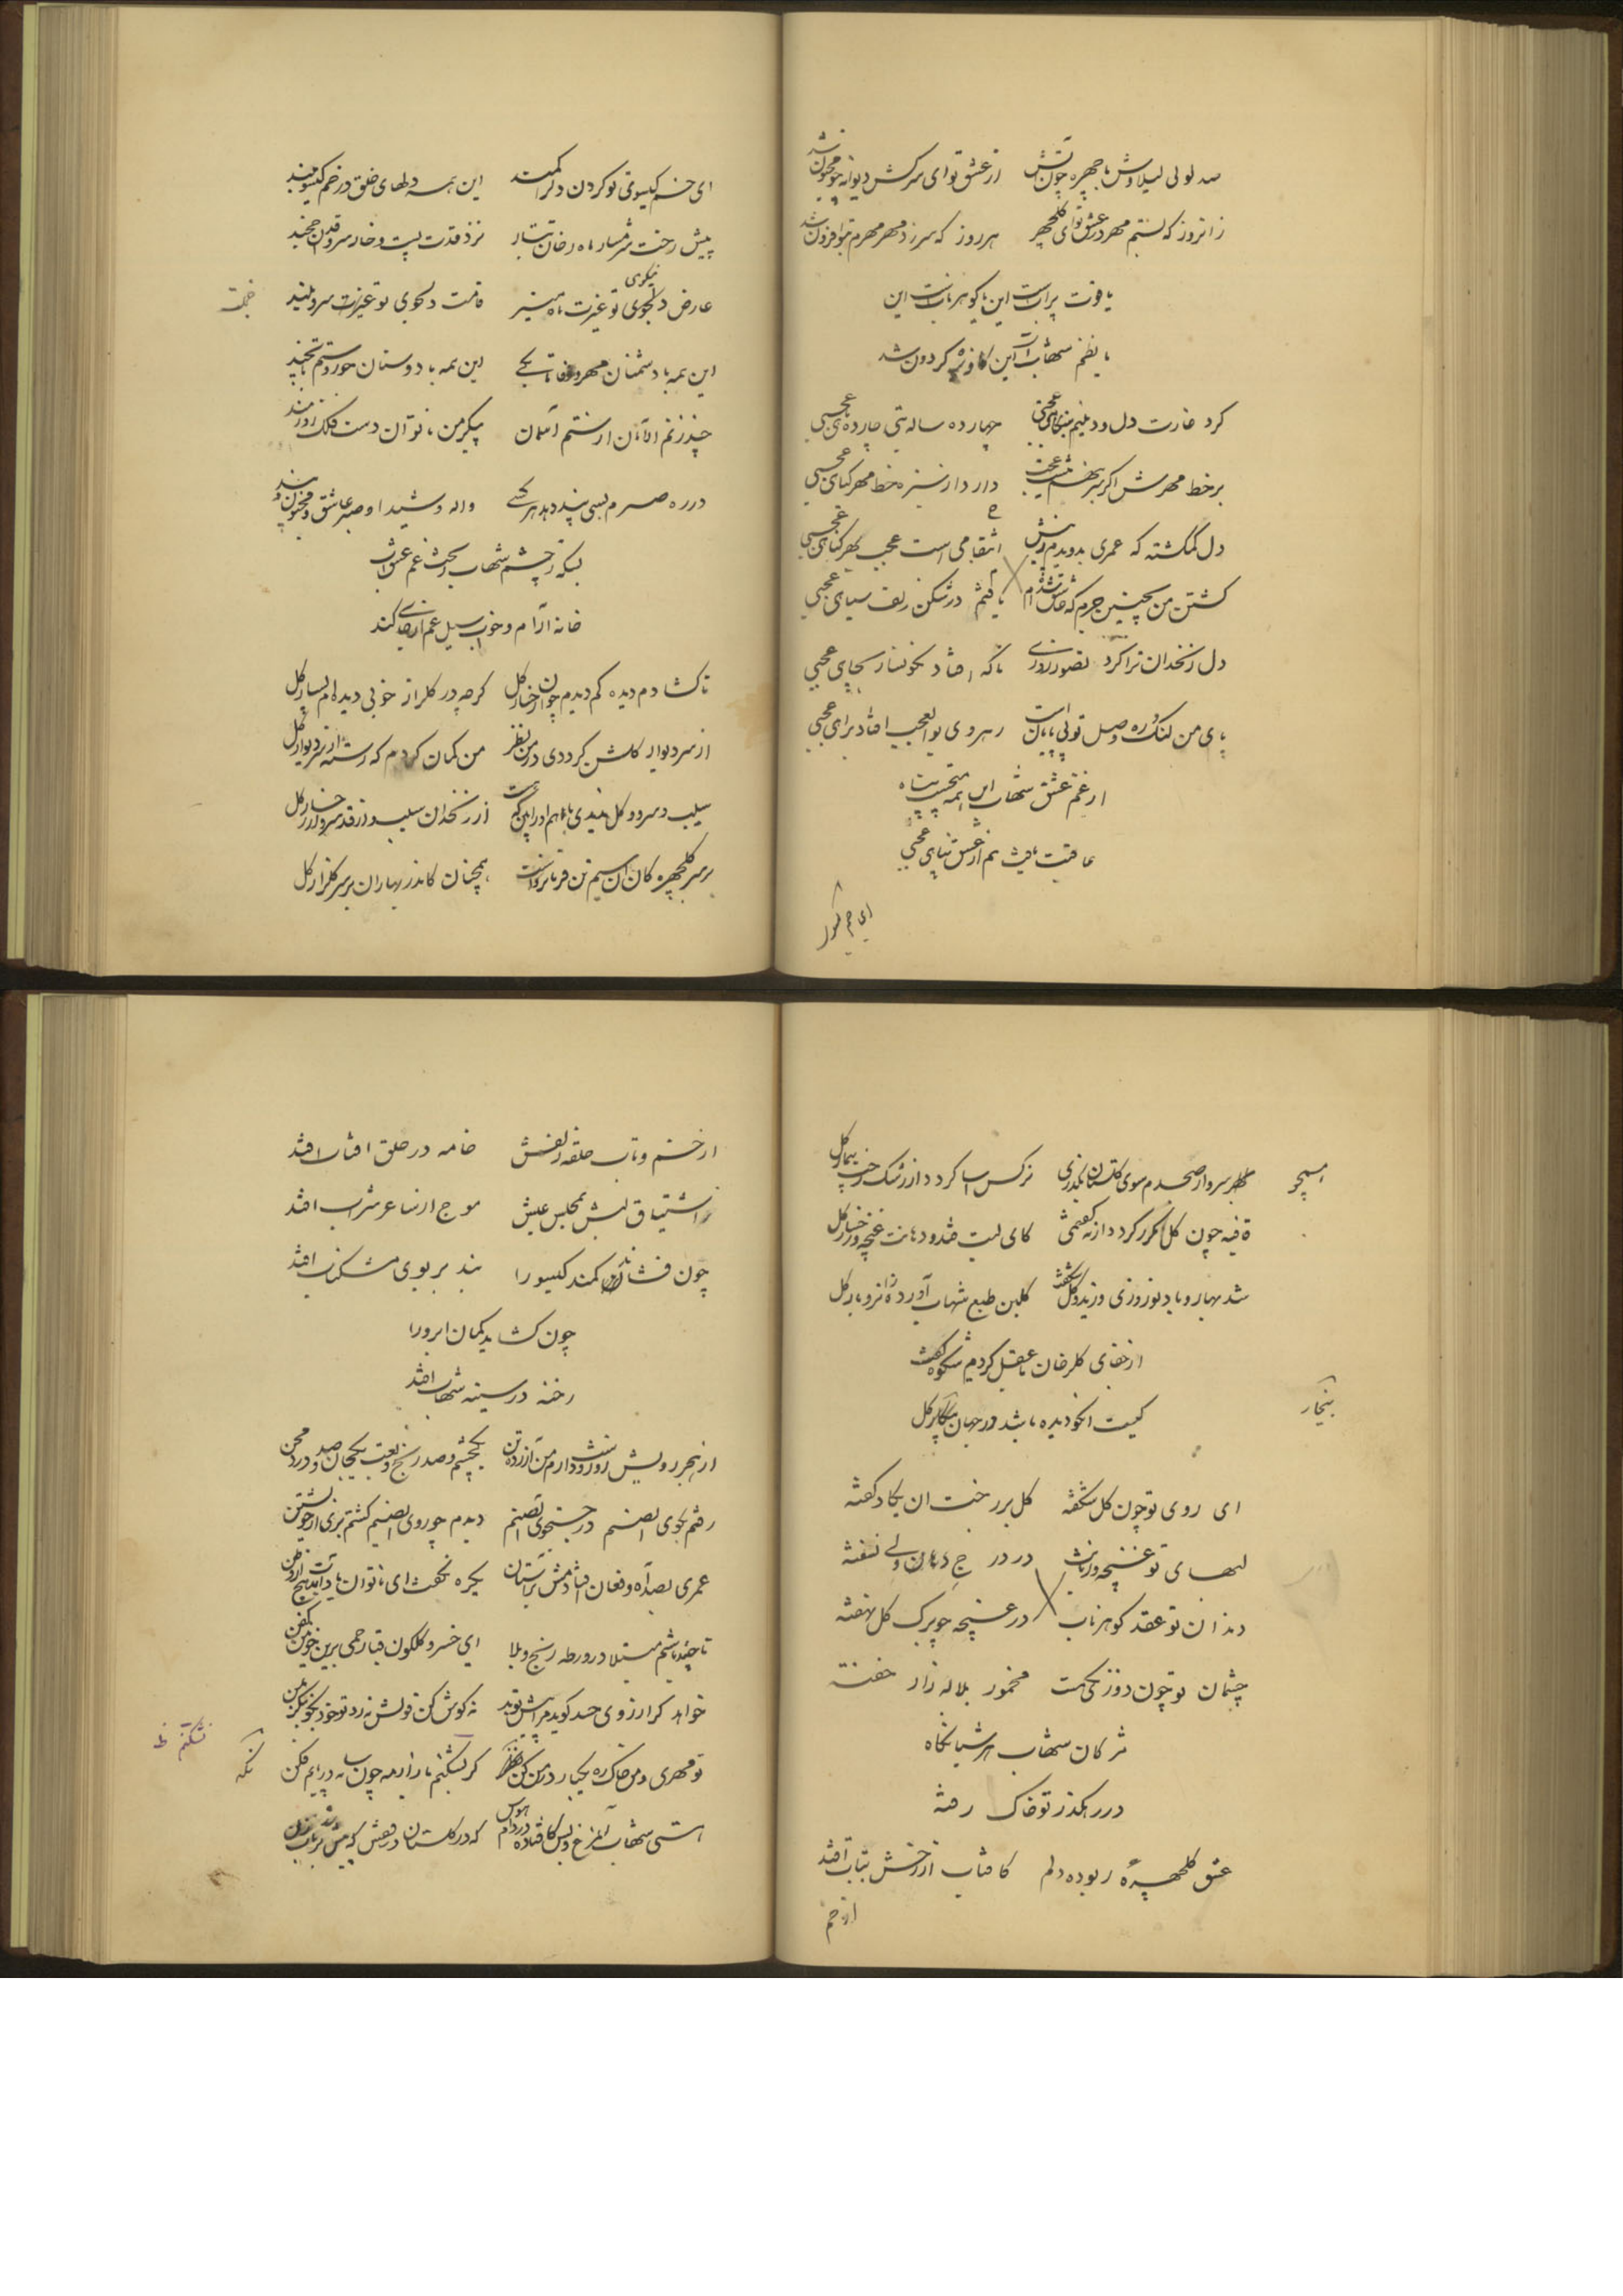 صد لولی لیلاوش با چهره چون آتش از عشق تو ای سرکش دیوانه چو مجنون شد
زانروز که بستم مهر در عشق تو ای گلچهر هر روز که سر زد مهر مهرم بتو افزون شد
یاقوت پرابست این یا گوهر نابست این
یا نظم شهابست این کاویزه گردون شد
کرد غارت دل و دینم بنگاهی عجبی چهارده ساله بتی چارده ماهی عجبی
بر خط مهرش اگر سر بنهم نیست عجب دارد از سبزه خط مهر گیاهی عجبی
دل گمگشته که عمری بدویدم ز پیش انتقامی است عجب بهر گناهی عجبی
کشتن من بچنین جرم که عاشق شده‌ام یافتم در شکن زلف سیاهی عجبی
دل زنخدان ترا کرد تصور روزی ناگه افتاد نگونسار بچاهی عجبی
پای من لنگ و ره وصل تو بی پایان است رهروی بوالعجب افتاد براهی عجبی
از غم عشق شهاب این همه بی پشت و پناه
عاقبت یافت هم از عشق پناهی عجبی
ای خم گیسوی تو گردن دلرا کمند این همه دلهای خلق در خم گیسو مبند
پیش رخت شرمسار ماه رخان تتار نزد قدت پست و خار سروقدان خجند
نیکوی
عارض دلجوی تو غیرت ماه منیر قامت دلجوی تو عبرت سرو بلند
خجلت
این همه با دشمنان مهر و وفا تا بکی این همه با دوستان جور و ستم تا بچند
چند زنم الامان از ستم آسمان پیکر من ناتوان دست فلک زورمند
در ره صبرم بسی پند دهد هر کسی واله و شیدا و صبر عاشق و مجنون و پند
بسکه ز چشم شهاب ریخت غم عشق آب
خانه آرام و خواب سیل غم از جای کند
تا گشادم دیده کم دیدم چو آن رخسار گل گرچه در گلزار خوبی دیده‌ام بسیار گل
از سر دیوار گلشن کرد دی در من نظر من گمان کردم که رسته از سر دیوار گل
سیب و سرو و گل ندیدی با هم او را بین که هست از زنخدان سیب و از قد سرو و از رخسار گل
بر سر گلچهرگان آن سیم تن فرمانرواست همچنان کاندر بهاران بر سر گلزار گل
ای خم گیسو
گر بهر سو از صبحدم سوی گلستان بگذری نرگس اسا گردد از رشک رخت بیمار گل
قافیه چون گل مکرر گردد ار نه گفتمی کای لبت قند و دهانت غنچه و رخسار گل
شد بهار و باد نوروزی وزید و گل شکفت گلبن طبع شهاب آورد از نو بار گل
از جفای گلرخان با عقل کردم شکوه گفت
کیست انکو دیده باشد در جهان بیخار گل
بیخار
ای روی تو چون گل شکفته گل بر رخت ان یکاد گفته
لبهای تو غنچه وز دانش در درج دهان ولی نسفته
دندان تو عقد گوهر ناب در غنچه چو برگ گل نهفته
چشمان تو چون دو زنگی مست مخمور بلاله زار خفته
مژگان شهاب هر شبانگاه
در رهگذر تو خاک رفته
عشق گلچهره‌ٔ ربوده دلم کافتاب از رخش بتاب افتد
از خم
از خم و تاب حلقه زلفش خامه در حلق افتاب افتد
ز اشتیاق لبش بمجلس عیش موج از ساغر شراب افتد
چون فشاند کمند گیسو را بند بر بوی مشکناب افتد
چون کشاید کمان ابرو را
رخنه در سینه شهاب افتد
از هجر رویش روز و شب دارم من آزرده تن یکچشم و صد رنج و تعب یکجان و صد درد و محن
رفتم بکوی آن صنم در جستجوی آن صنم دیدم چو روی آن صنم گشتم بری از خویشتن
عمری بصد آه و فغان افتادمش بر آستان یکره نگفت ای ناتوان یادت نیامد هیچ از وطن
تا چند باشم مبتلا در ورطه رنج و بلا ای خسرو گلگون قبا رحمی برین خونین کفن
تو مهری و من خاک ره یکبار در من کن نگه گر بشکنم بازار مه چون سایه در پایم فکن
نگه
نشکنم ظ